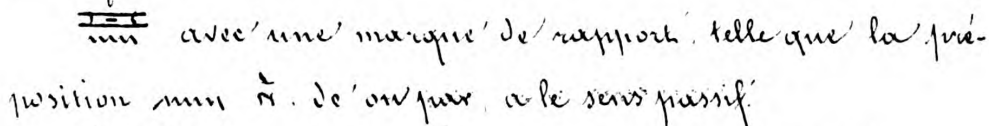 avec une marque de rapport, telle que la pré-
position 𓈖 ǹ. de ou par, a le sens passif.